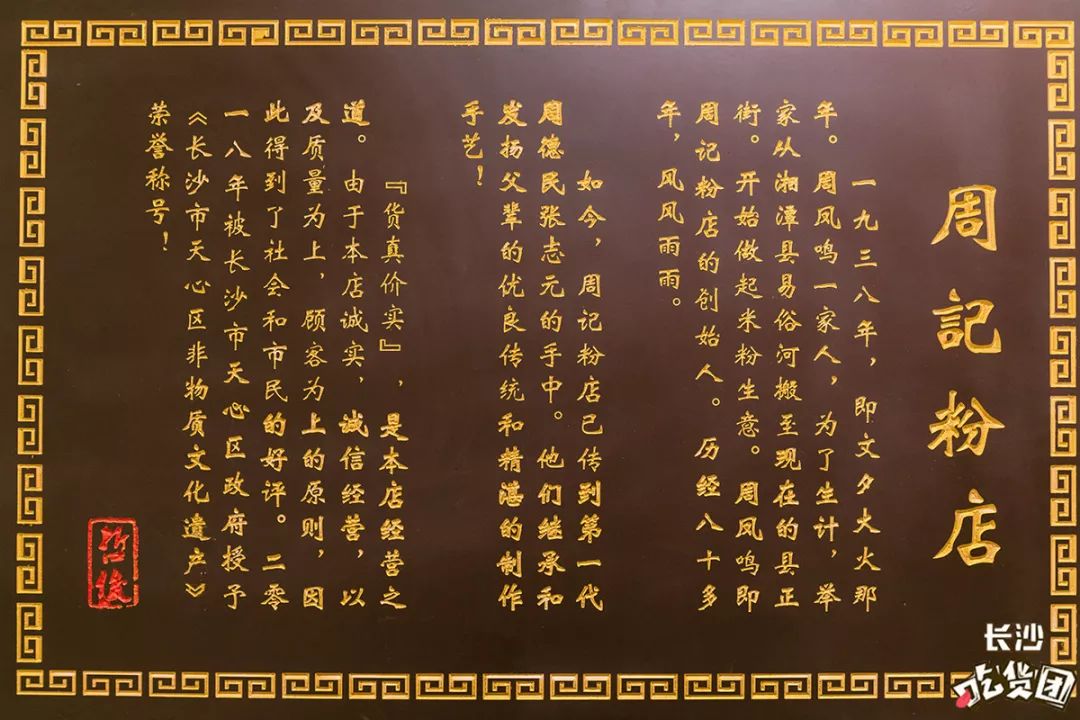 周記粉店
一九三八年，即文夕大火那
年。周凤鸣一家人，为了生计，举
家从湘潭县易俗河搬至现在的县正
街。开始做起米粉生意。周凤鸣即
周记粉店的创始人。历经八十多
年，风风雨雨。
如今，周记粉店已传到第一代
周德民张志元的手中。他们继承和
发扬父辈的优良传统和精湛的制作
手艺！
『货真价实』，是本店经营之
道。由于本店诚实，诚信经营，以
及质量为上，顾客为上的原则，因
此得到了社会和市民的好评。二零
一八年被长沙市天心区政府授予
《长沙市天心区非物质文化遗产》
荣誉称号！
长沙
吃货团